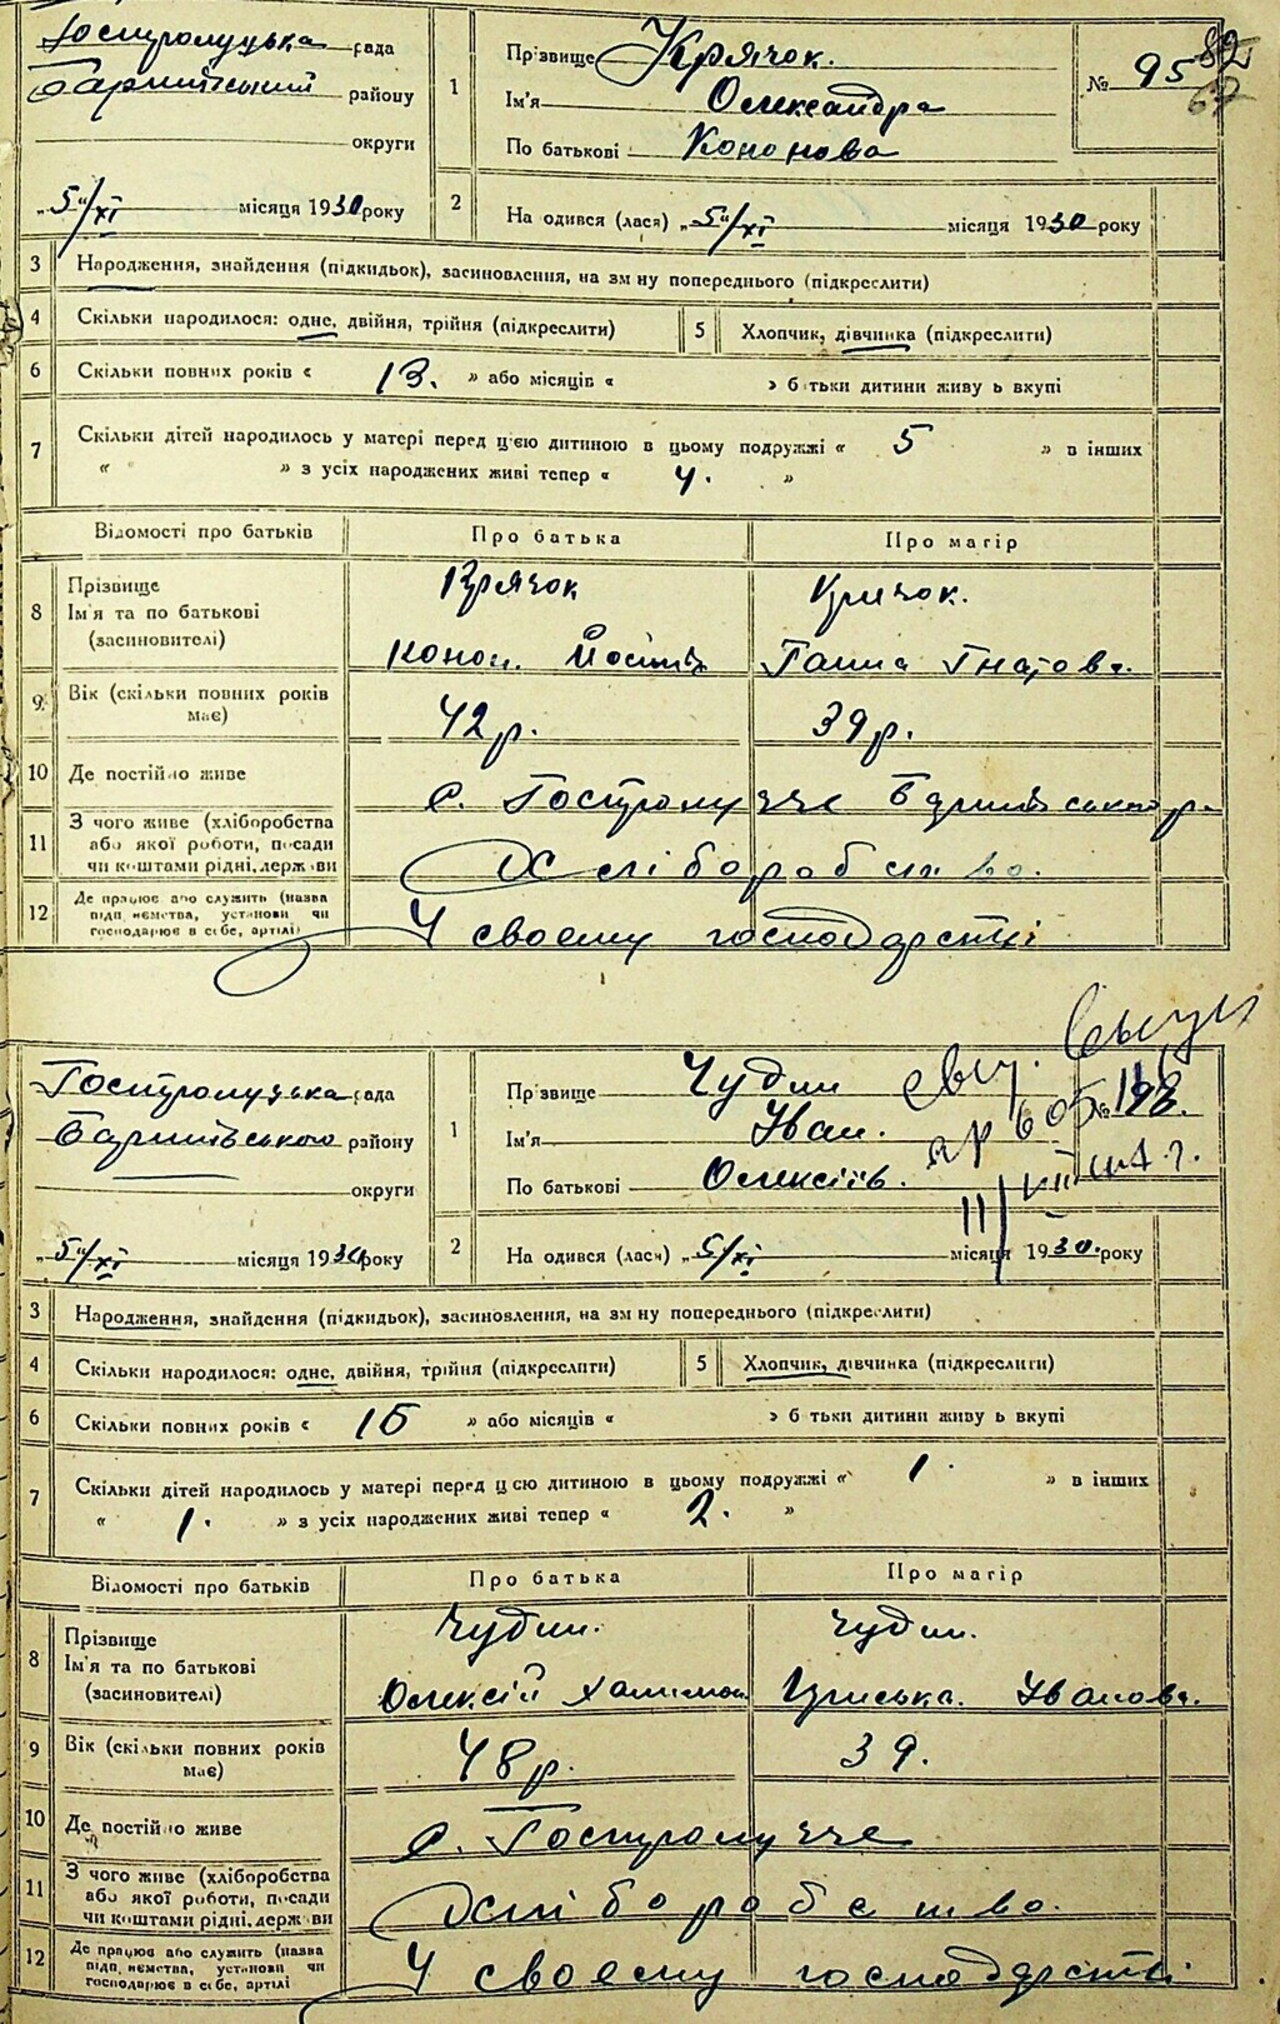 Гостролуцька рада
Баришівський району
округи
„5“/XI місяця 1930 року
1
Прізвище Крячок.
Ім'я Олександра
По батькові Кононова
№ 95
82
67
2
На одився (лася) „5“/XI місяця 1930 року
3 Народження, знайдення (підкидьок), засиновлення, на зм ну попереднього (підкреслити)
4 Скільки народилося: одне, двійня, трійня (підкреслити) 5 Хлопчик, дівчинка (підкреслити)
6 Скільки повних років « 13. » або місяців « » б тьки дитини живу ь вкупі
7 Скільки дітей народилось у матері перед цією дитиною в цьому подружжі « 5 » в інших
« » з усіх народжених живі тепер « 4. »
Відомості про батьків Про батька Про матір
8 Прізвище
Ім'я та по батькові
(засиновителі)
Крячок Крячок.
Конон. Йосипів Ганна Гнатова.
9. Вік (скільки повних років
має)
42 р. 39 р.
10 Де постійно живе с. Гостролуччє Баришівського р.
11 З чого живе (хліборобства
або якої роботи, посади
чи коштами рідні, держ ви
Хліборобство.
12 Де працює або служить (назва
підп иємства, установи чи
господарює в себе, артілі)
У своєму господарстві
Гостролуцька рада
Баришівського району
округи
„5“/XI місяця 1930 року
1
Пр звище Чудин
Ім'я Іван.
По батькові Олексіїв.
№ 198.
2
На одився (лася) „5/XI місяця 1930. року
3 Народження, знайдення (підкидьок), засиновлення, на зм ну попереднього (підкреслити)
4 Скільки народилося: одне, двійня, трійня (підкреслити) 5 Хлопчик, дівчинка (підкреслити)
6 Скільки повних років « 15 » або місяців « » б тьки дитини живу ь вкупі
7 Скільки дітей народилось у матері перед цією дитиною в цьому подружжі « 1. » в інших
« 1. » з усіх народжених живі тепер « 2. »
Відомості про батьків Про батька Про матір
8 Прізвище
Ім'я та по батькові
(засиновителі)
Чудин. Чудин.
Олексій Іванова.
9 Вік (скільки повних років
має)
48 р. 39.
10 Де постійно живе с. Гостролуччє
11 З чого живе (хліборобства
або якої роботи, посади
чи коштами рідні, держ ви
Хліборобство.
12 Де працює або служить (назва
підп иємства, установи чи
господарює в себе, артілі
У своєму господарстві